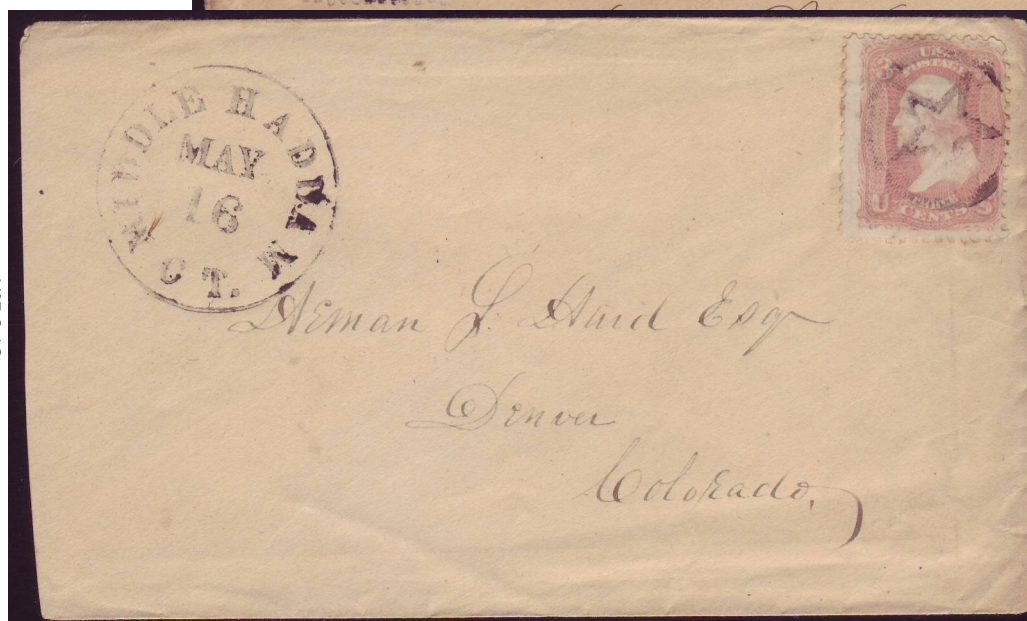 MIDDLE HADDAM
MAY
16
CT.
U.S.
POSTAGE
3
U CENTS S
Heman J. Hurd Esqr
Denver
Colorado,